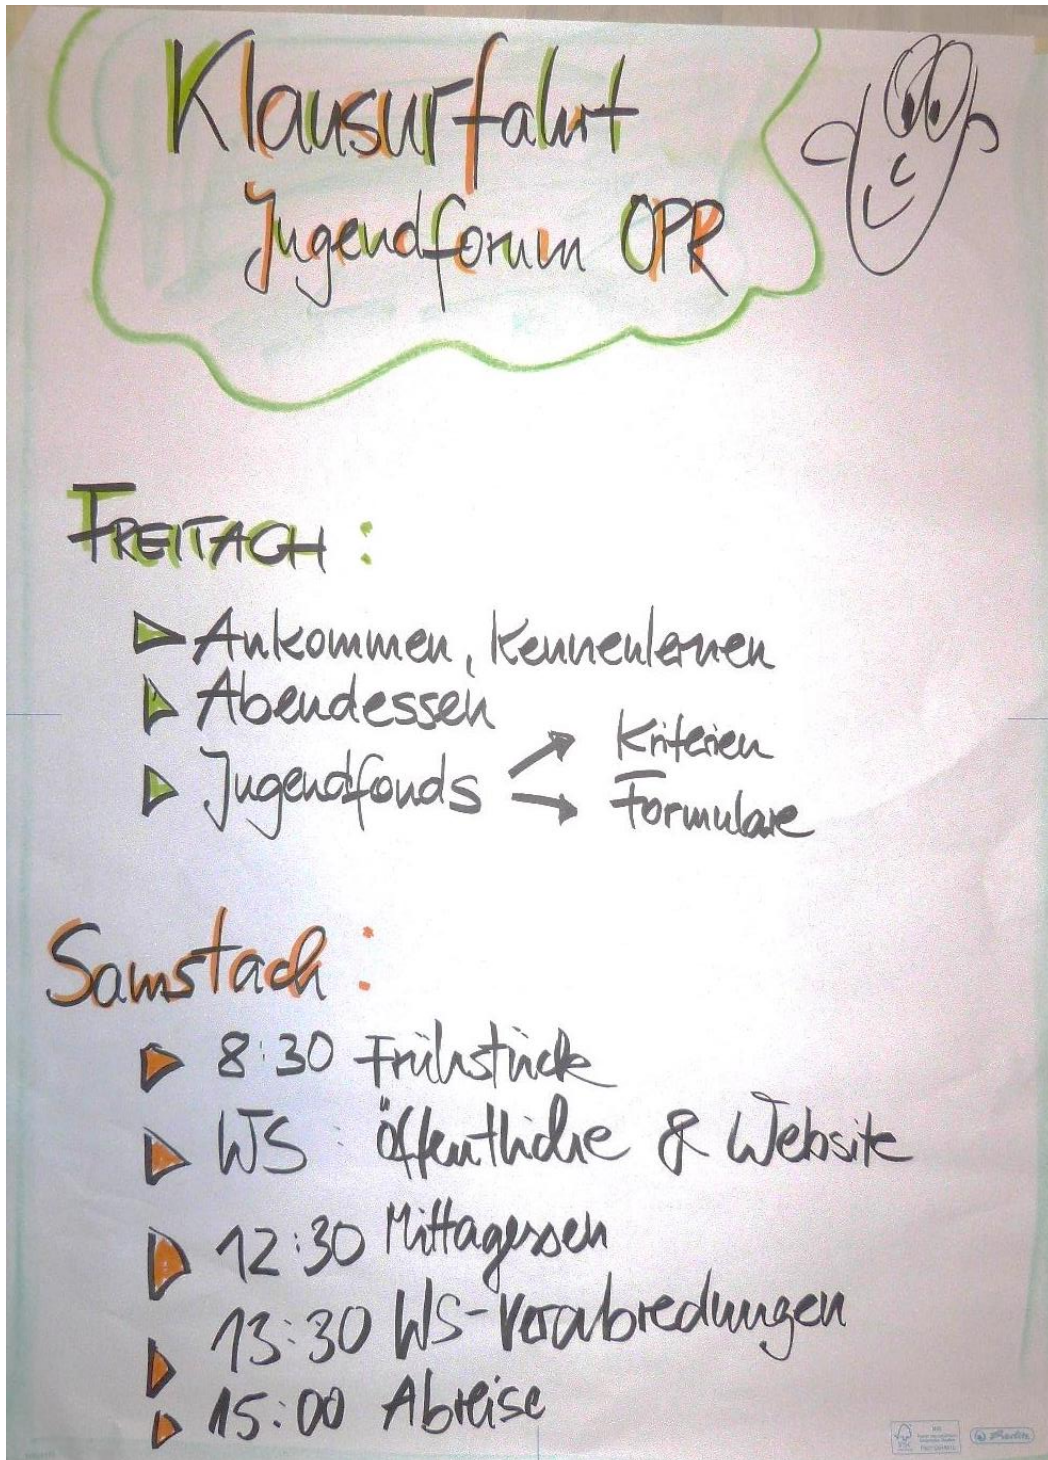 Klausurfahrt
Jugendforum OPR
FREITACH :
Ankommen, Kennenlernen
Abendessen
Jugendfonds
Kriterien
Formulare
Samstach :
8:30 Frühstück
WS : öffentliche & Website
12:30 Mittagessen
13:30 WS-Verabredungen
15:00 Abreise
FSC